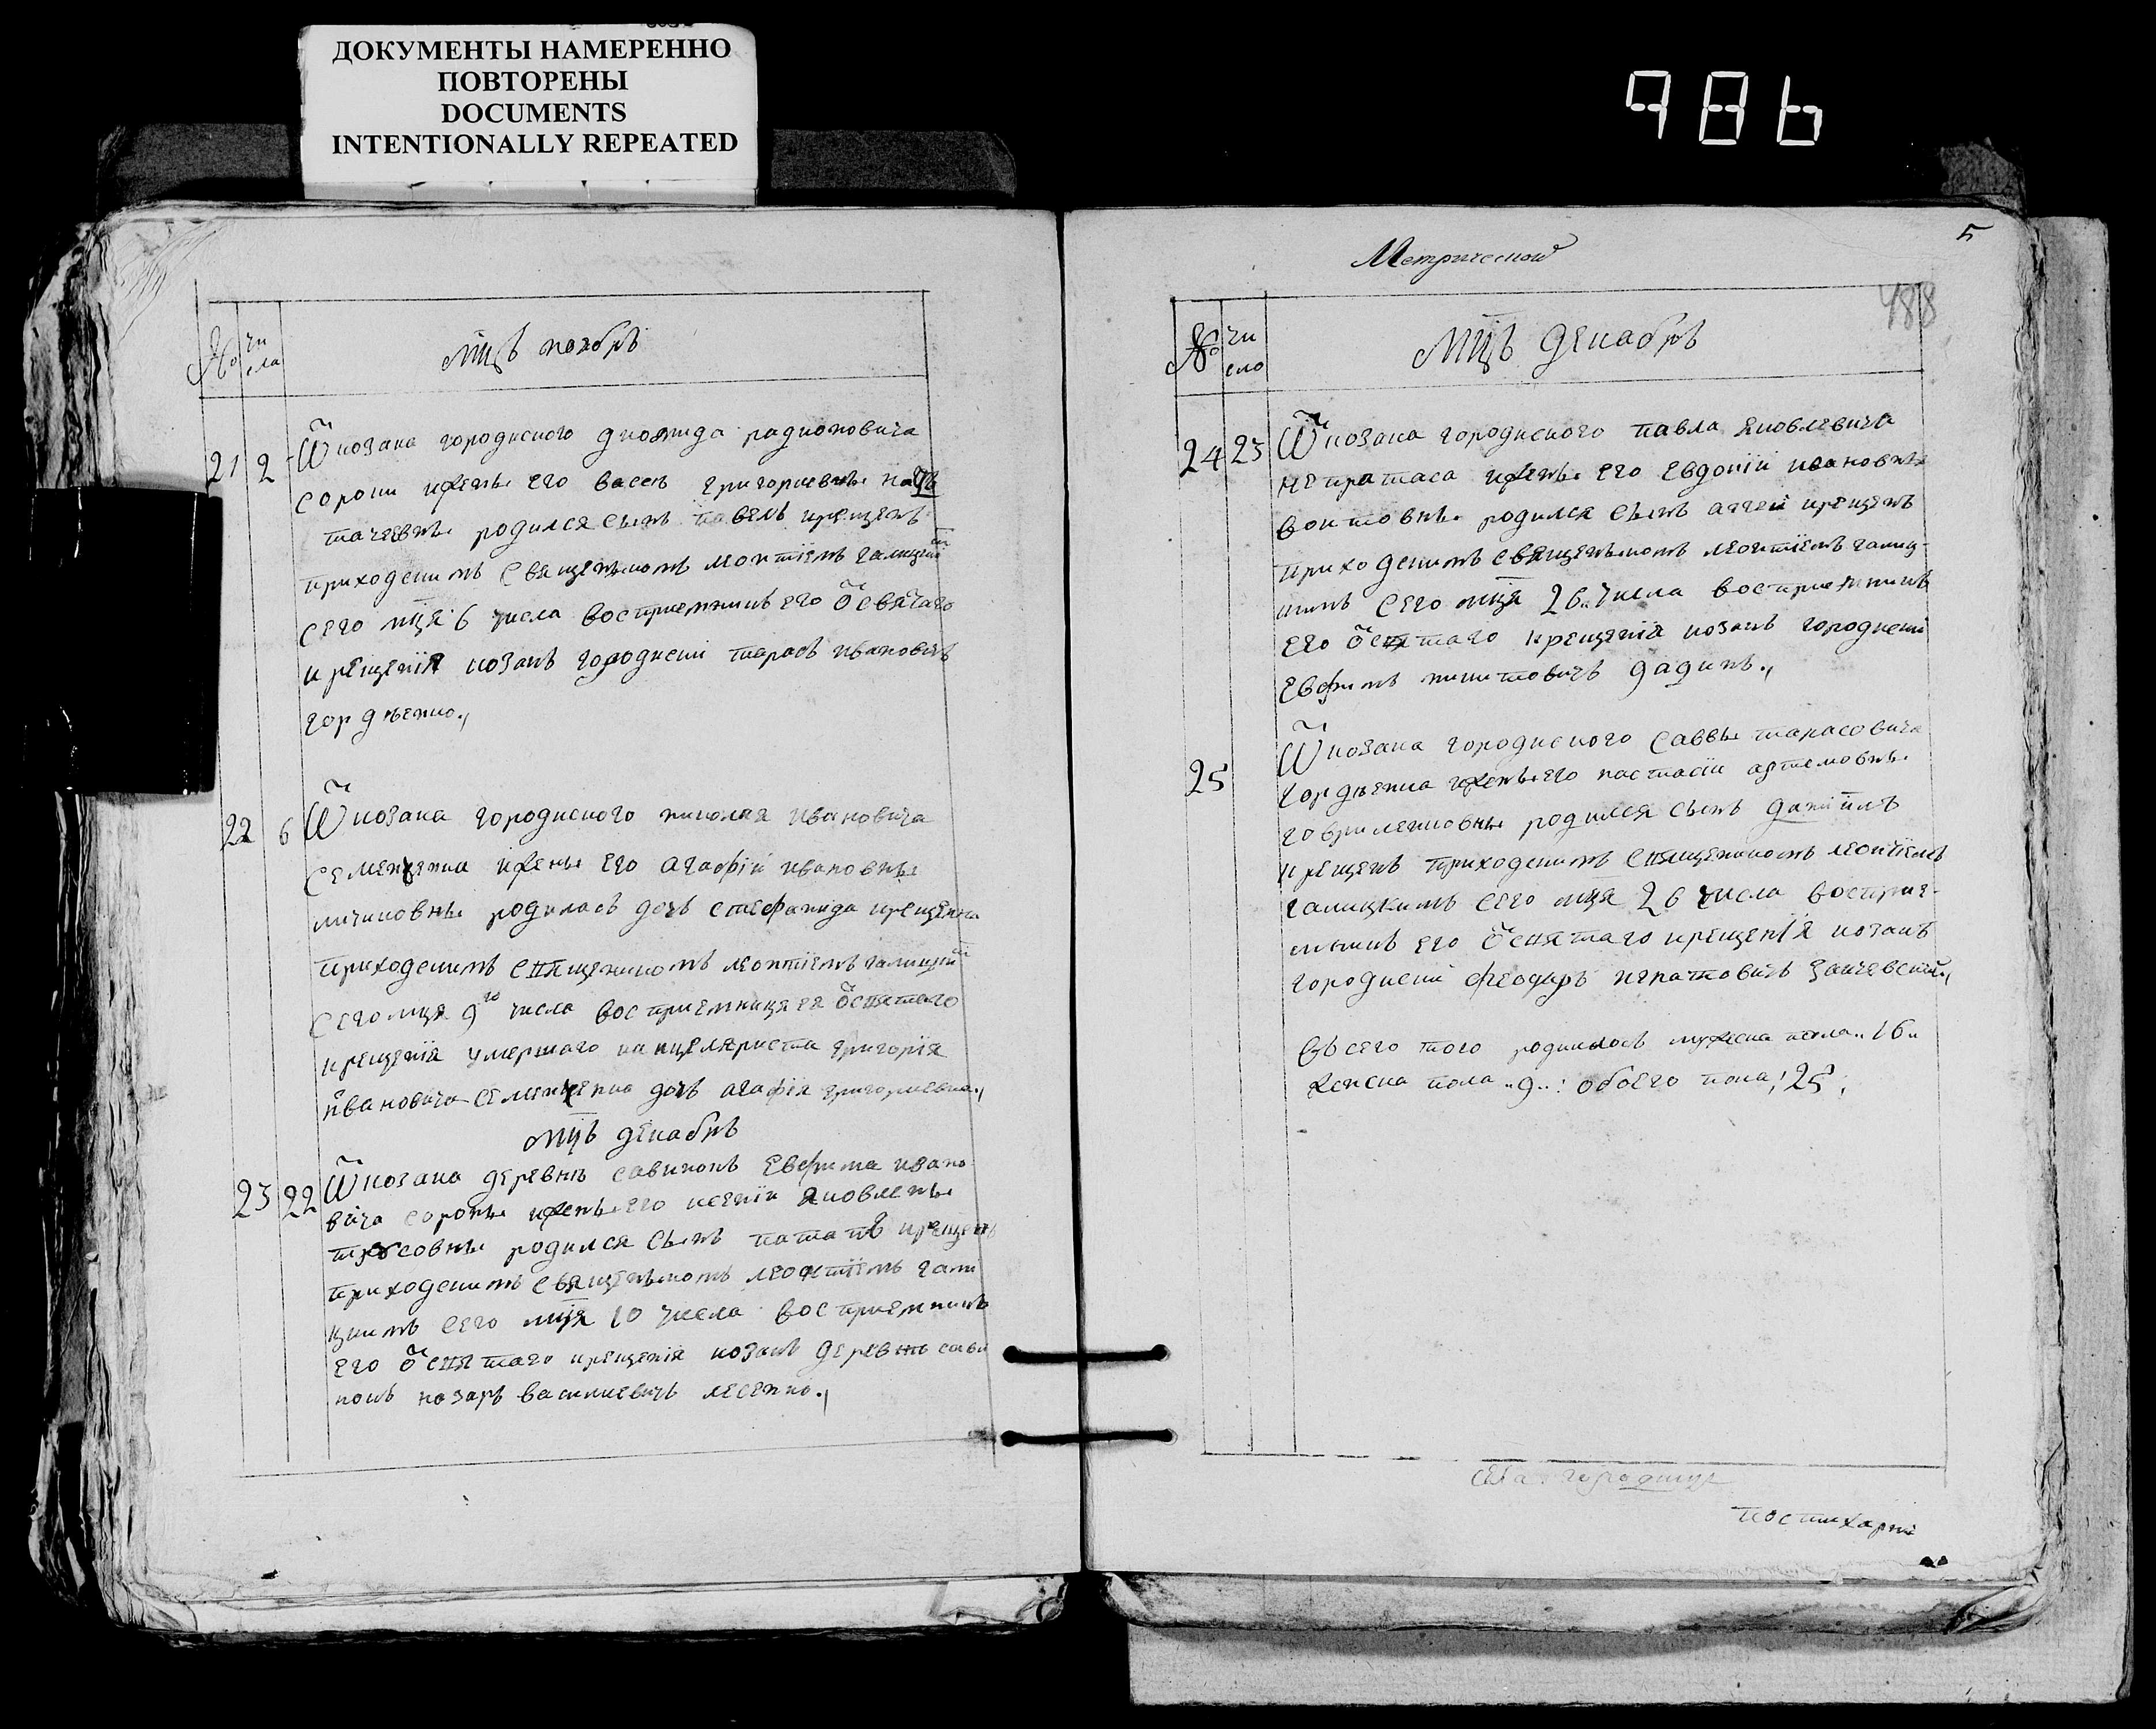 ДОКУМЕНТЫ НАМЕРЕННО
ПОВТОРЕНЫ
DOCUMENTS
INTENTIONALLY REPEATED
986
№ чи сла
мцъ ноябрь
21 2 Ѿ козака городиского диомида радионовича
сороки и жены его вассы григориевны
родился сынъ павелъ крещенъ
приходскимъ священыкомъ леонтіемъ галицкимъ
сего мця 6 числа восприемникъ его ѿ святаго
крещенія козакъ городискій тарасъ ивановичъ
гордѣенко.,
22 6 Ѿ козака городиского николая ивановича
семененка и жены его агафіи ивановны
личиковны родилась дочь стефанида крещенна
приходскимъ священникомъ леонтіемъ галицкимъ
сего мця 9го числа восприемница ея ѿ святаго
крещенія умершаго канцеляриста григорія
ивановича семененка дочь агафія григориевна.,
мцъ декабрь
23 22 Ѿ козака деревнѣ савинокъ евфима ивано
вича сороки и жены его ксеніи яковлевны
родился сынъ крещенъ
приходскимъ священыкомъ леонтіемъ гали
цкимъ сего мця 10 числа восприемникъ
его ѿ святаго крещенія козакъ деревнѣ сави
нокъ назаръ василиевичъ лесенко.,
Метрической
5
488
№ чи сло
мцъ декабрь
24 23 Ѿ козака городиского павла яковлевича
и жены его евдокіи ивановны
воитовны родился сынъ аггей крещенъ
приходскимъ священыкомъ леонтіемъ галиц-
кимъ сего мця 26 числа восприемникъ
его ѿ святаго крещенія козакъ городискій
евфимъ никитовичъ дадикъ.,
25 Ѿ козака городиского саввы тарасовича
гордѣенка и жены его настасіи артемовны
говриленковны родился сынъ даніилъ
крещенъ приходскимъ священикомъ леонтіемъ
галицкимъ сего мця 26 числа восприе-
мникъ его ѿ святаго крещенія козакъ
городискій феодоръ игнатовичъ заичевскій.,
Всего того родилось мужеска пола.. 16..
женска пола.. 9..: обоего пола; 25;
села городища